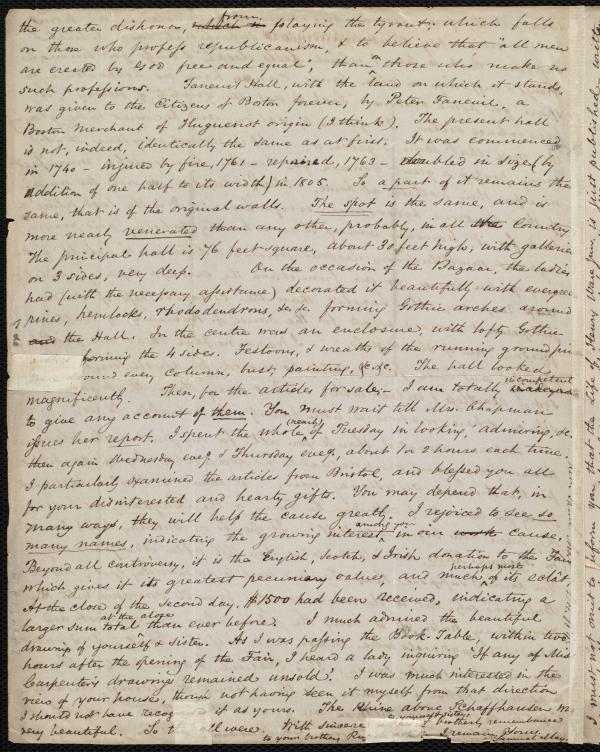 the greater dishonor, from playing the tyrant, which falls
on those who profess republicanism, & to believe that "all men
are created by God free and equal", than on those who make no
such professions. Faneuil Hall, with the land on which it stands,
was given to the Citizens of Boston forever, by Peter Faneuil, a
Boston Merchant of Huguenot origin (I think). The present hall
is not, indeed, identically the same as at first. It was commenced
in 1740 - injured by fire, 1761 - repaired, 1763 - doubled in size (by
addition of one half to its width) in 1805. So a part of it remains the
same, that is of the original walls. The spot is the same, and is
more nearly venerated than any other, probably, in all the Country
The principal hall is 76 feet square, about 30 feet high, with galleries
on 3 sides, very deep. On the occasion of the Bazaar, the ladies
had (with the necessary assistance) decorated it beautifully with evergreen
pines, hemlocks, rhododendrons, &c. &c. forming Gothic arches around
the Hall. In the centre was an enclosure, with lofty Gothic
forming the 4 sides. Festoons, & wreaths of the running ground pine
round every column, bust, painting, &c. &c. The hall looked
magnificently. Then, for the articles for sale; - I am totally incompetent
to give any account of them. You must wait till Mrs. Chapman
issues her report. I spent the whole (nearly) of Tuesday in looking, admiring, &c.
then again Wednesday eveg. & Thursday eveg., about 1 or 2 hours each time.
I particularly examined the articles from Bristol, and blessed you all
for your disinterested and hearty gifts. You may depend that, in
many ways, they will help the cause greatly. I rejoiced to see so
many names, indicating the growing interest among you in our cause.
Beyond all controversy, it is the English, Scotch, & Irish donation to the Fair
which gives it its greatest pecuniary value, and perhaps most much of its eclât.
At the close of the second day, $1500 had been received, indicating a
larger sum total at the close than ever before. I much admired the beautiful
drawings of yourself & sister. As I was passing the Book-Table, within two
hours after the opening of the Fair, I heard a lady inquiring "If any of Miss
Carpenter's drawings remained unsold". I was much interested in the
view of your house, though not having seen it myself from that direction
I should not have it as yours. The Rhine above Schaffhausen is
very beautiful. were. With sincere & brotherly remembrance
to yourself & sister,
to your brothers I remain Yours,
Samuel May.
I must not omit to inform you that the life of Henry Ware Jun. is just published